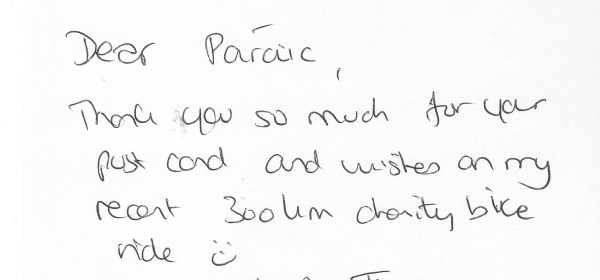 Dear Paraic,
Thank you so much for your
post card and wishes on my
recent 300km charity bike
ride ☺